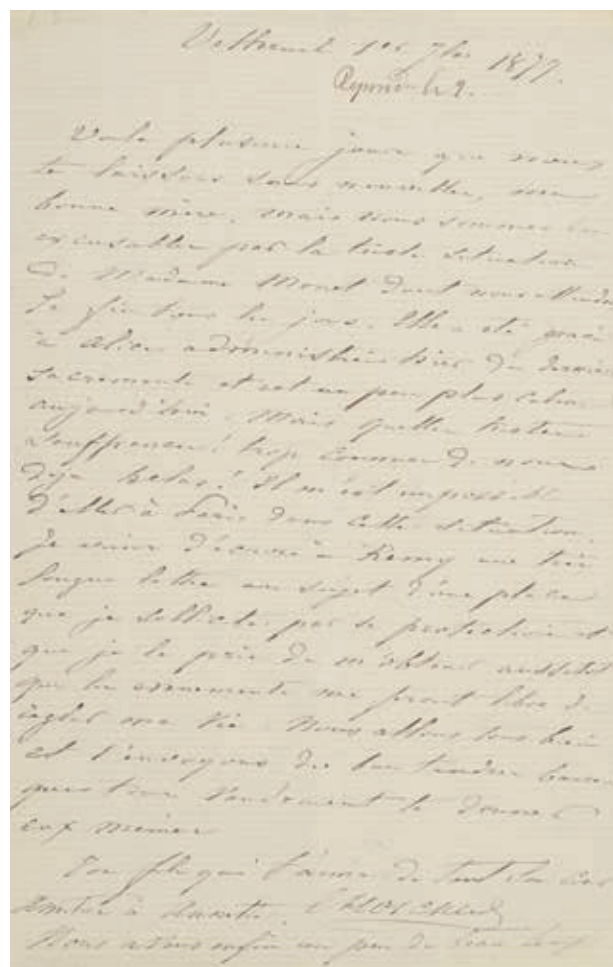 Vetheuil 1er 7bre 1879.
Repondu le 2.
Voila plusieurs jours que nous
te laissons sans nouvelles, ma
bonne mère, mais nous sommes bien
excusables par la triste situation
de Madame Monet dont nous attendons
la fin tous les jours. Elle a été grâce
à Alice administrée hier des derniers
sacrements et est un peu plus calme
aujourd'hui. Mais quelles
souffrances! trop connues de nous
déjà helas! Il m'est impossible
d'aller à Paris dans cette situation.
Je viens d'écrire à Remy une très
longue lettre au sujet d'une place
que je sollicite par sa protection et
que je le prie de m'obtenir aussitôt
que les évenements me feront libre de
régler ma vie. Nous allons tous bien
et t'envoyons de bien tendres baisers
que tous voudraient te donner
eux mêmes
Ton fils qui t'aime de tout son cœur
à
Nous avons enfin un peu de beau temps